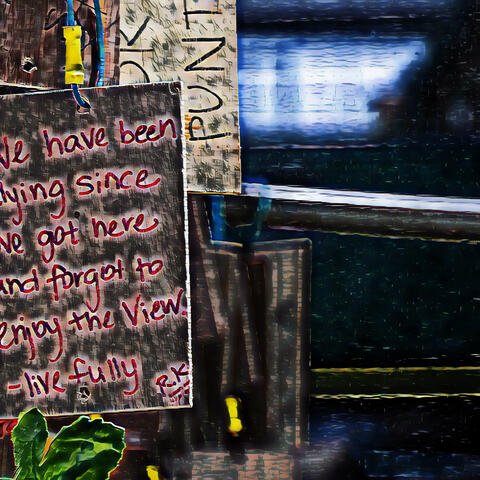 We have been
dying since
we got here
and forgot to
enjoy the View.
-live fully R.K
PUNT